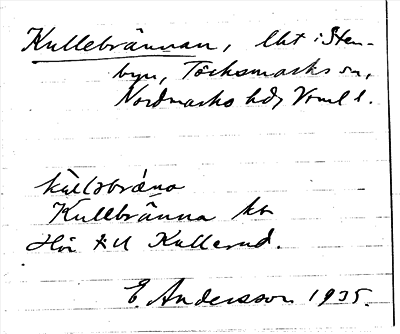 Kullebrännan, lht i Sten-
byn, Töcksmarks sn,
Nordmarks hd, Vrml l.
kùl(ə)bræna
Kullbränna ks
Hör till Kullerud.
E. Andersson 1935.